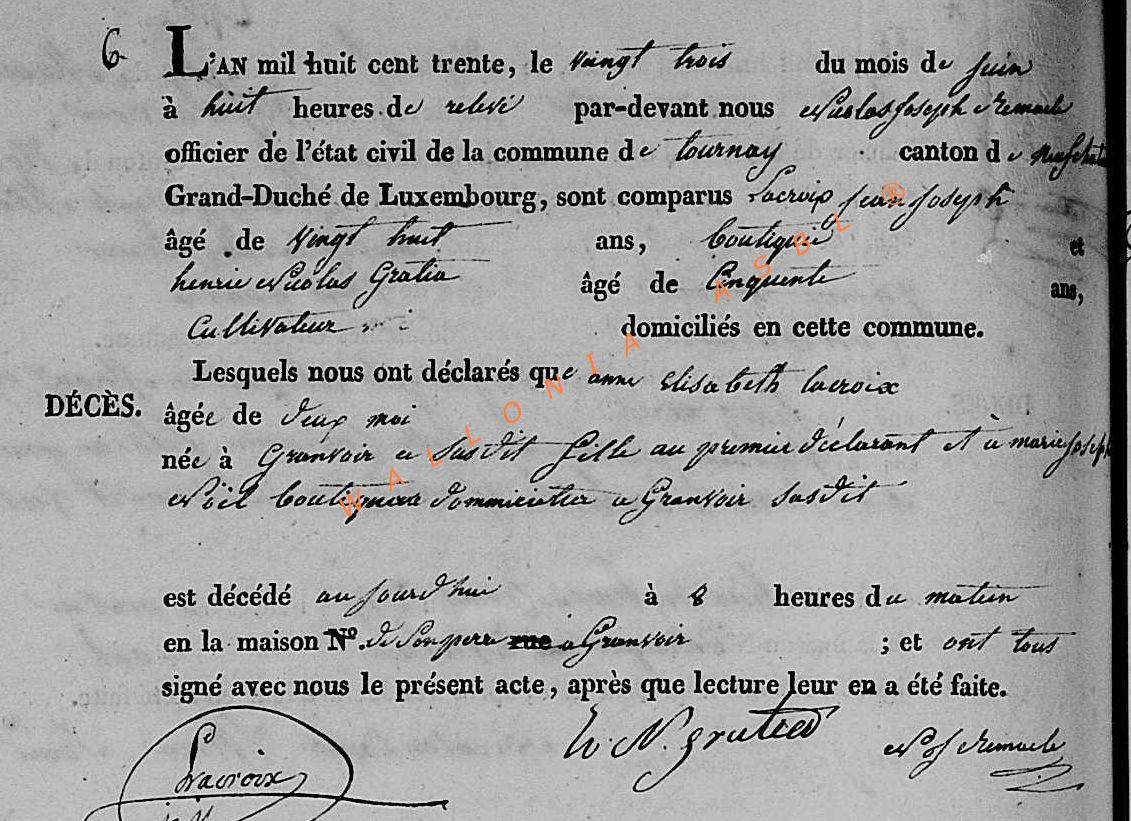 6 L'AN mil huit cent trente, le vingt trois du mois de juin
à huit heures de relevé par-devant nous Nicolas Joseph Remacle
officier de l'état civil de la commune de tournay canton de neufchat
Grand-Duché de Luxembourg, sont comparus Lacroix Jean Joseph
âgé de vingt huit ans, boutiquié et
henrie Nicolas Gratia âgé de Cinquente ans,
Cultivateur domiciliés en cette commune.
Lesquels nous ont déclarés que anne Elisabeth lacroix
DÉCÈS. âgée de deux moi
née à Granvoir a susdit fille au premier déclarant et à marie joseph
Noël boutiquiere dommicilier a Granvoir susdit
est décédé aujourd'hui à 8 heures du matin
en la maison N°. de son pere rue a Granvoir ; et ont tous
signé avec nous le présent acte, après que lecture leur en a été faite.
Lacroix h N. gratia N Jos Remacle
WALLONIA ASBL®